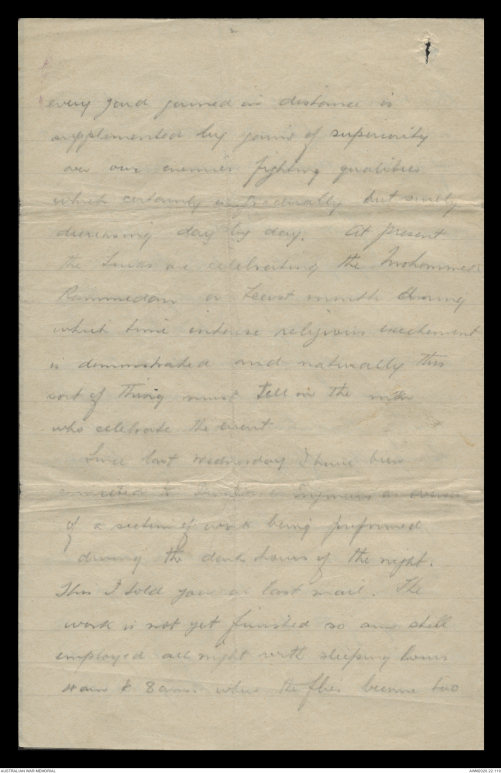 every yard gained in distance is
supplemented by gains of superiority
over our enemies fighting qualities
which certainly is gradually but surely
decreasing day by day. At present
the Turks are celebrating the Mohammed
Rammedan or Feast month during
which time intense religious excitement
is demonstrated and naturally this
sort of thing must tell on the
who celebrate the event
Since last Wednesday I have been
to Engineers as
of a section of work being preformed
during the dark hours of the night.
This I told you last mail. The
work is not yet finished so am still
employed all night with sleeping hours
4am to 8am. when the flies become too
AUSTRALIAN WAR MEMORIAL